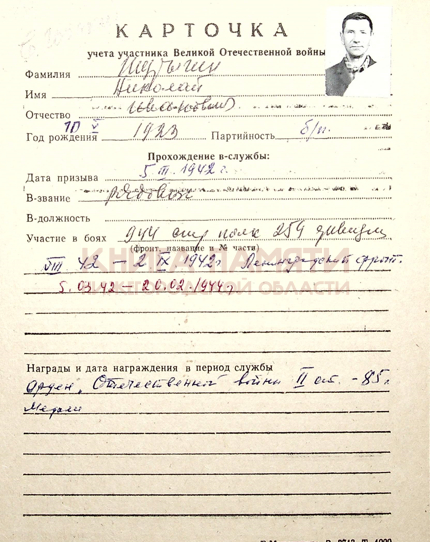 КАРТОЧКА
учета участника Великой Отечественной войны
Фамилия
Имя Николай
Отчество
Год рождения 10 V 1923 Партийность б/п.
Прохождение в-службы:
Дата призыва 5 III. 1942 г.
В-звание рядовой
В-должность
Участие в боях 944 стр полк 254 дивизии
(фронт, название и № части)
КНИГА ПАМЯТИ
VIII 42 – 2 IX 1942г Ленинградский фронт.
ОБЛАСТИ
5.03.42 – 20.02.1944г
Награды и дата награждения в период службы
Орден, Отечественной войны II ст. -85г.
Медали